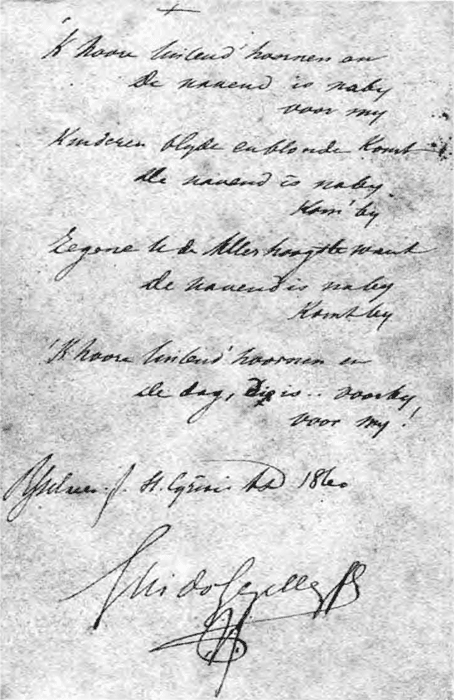 +
'k hoore tuitend' hoornen en
de navend is naby
voor my
Kinderen blyde en blonde komt
de navend is naby
Kom' by
Zegene U de Allerhoogste want
de navend is naby
Komt by
'k hoore tuitend' hoornen en
de dag, die is .. voorby,
voor my!
St. 1860
Guido Gezelle